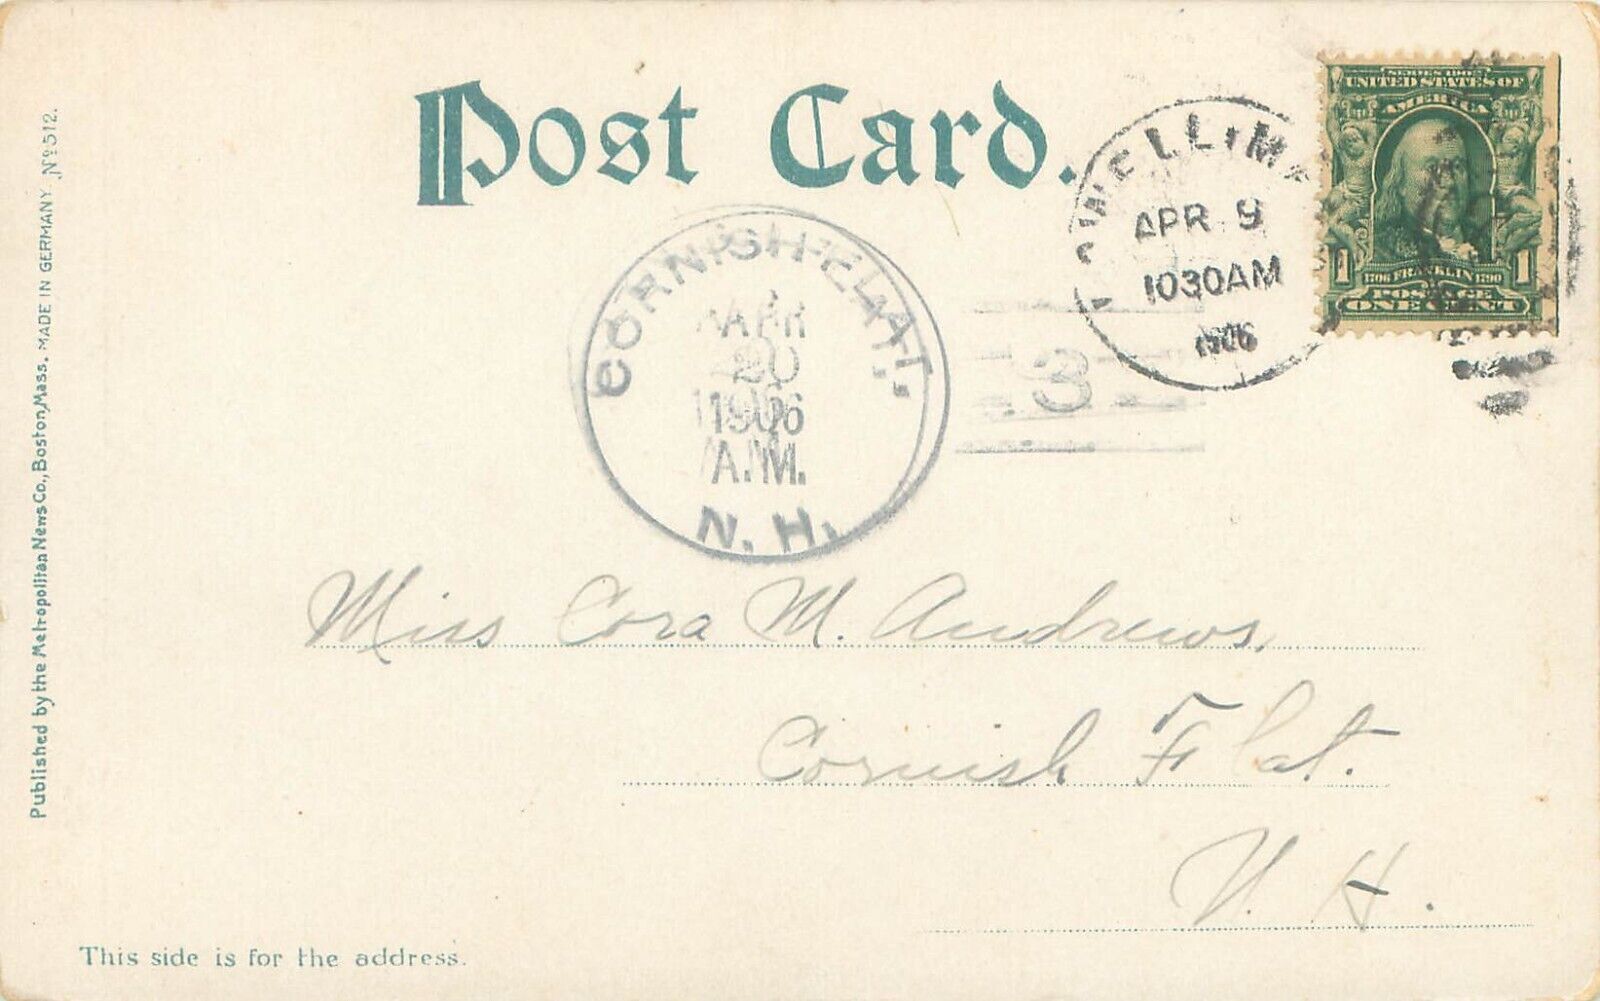 Post Card.
SERIES 1902
UNITED STATES OF
AMERICA
1706 FRANKLIN 1790
POSTAGE
1 ONE CENT 1
LOWELL, MASS.
APR 9
1030AM
1906
3
CORNISH FLAT,
APR
20
1906
A.M.
N. H.
Miss Cora M. Andrews,
Cornish Flat.
N. H.
This side is for the address.
Published by the Metropolitan News Co., Boston, Mass. MADE IN GERMANY. No. 512.